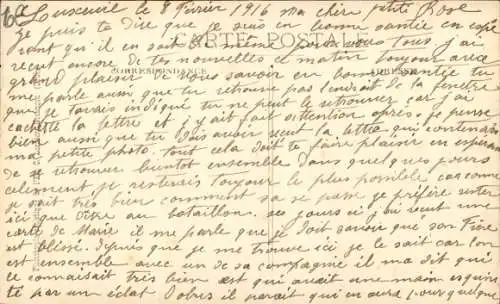 Luxeuil le 8 Février 1916 ma chère petite Rose
Je puis te dire que je suis en bonne santée en espe
CARTE POSTALE
rant qu'il en soit de même pour vous tous j'ai
recut encore de tes nouvelles ce matin toujour avec
grand plaisir de vous savoir en bonne santée tu
CORRESPONDANCE
me parle aussi que tu retrouve pas l'endroit de la fenetre
que je tavais indiqué tu ne peut le retrouver car j'ai
cachette la lettre et j'y ait fait attention après. Je pense
bien aussi que tu dois avoir recut la lettre qui contenait
ma petite photo. tout cela doit te faire plaisir en esperant
de se retrouver bientot ensemble Dans quelques jours
je resterais toujour le plus possible car comme
je sait très bien comment sa se passe je préfère rester
ici que d'être au bataillon. ses jours ici j'ai recut une
carte de Marie il me parle que je doit savoir que son Frère
est blissé. depuis que je me trouve ici je le sait car l'on
est ensemble avec un de sa compagnie il ma dit qui
le connaisait très bien est qui avait une main
te par un éclat il parait qui en aura pour quelque